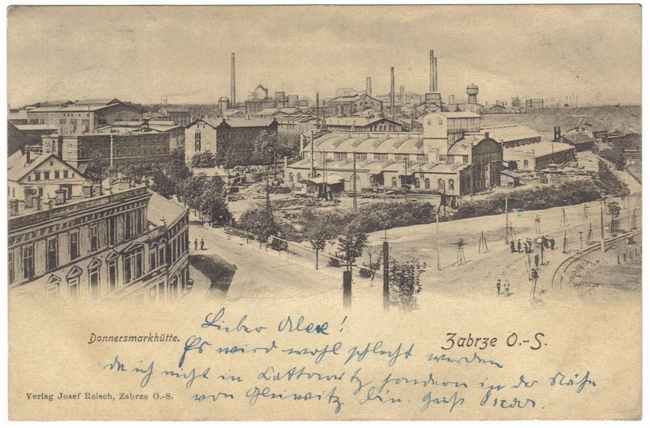 Donnersmarkhütte.
Zabrze O.-S.
Lieber Alex!
Es wird wohl schlecht werden
da ich nicht in Cattowitz sondern in der Nähe
von Gleiwitz bin. Gruß
Verlag Josef Reisch, Zabrze O.-S.